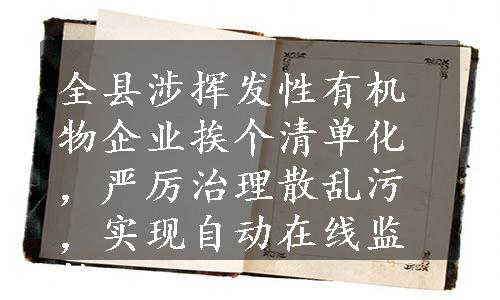 全县涉挥发性有机
物企业挨个清单化
，严厉治理散乱污
，实现自动在线监